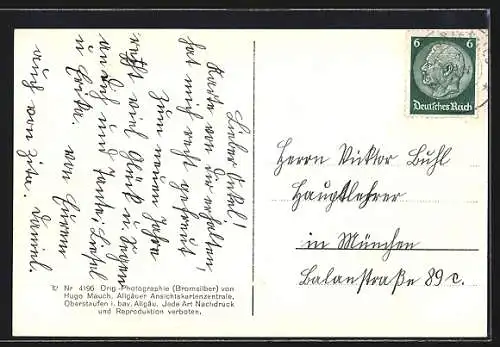 Lieber Onkel!
Karte von Dir erhalten,
hat mich recht gefreut
zum neuen Jahre
recht viel Glück u. Segen
an Dich und Tante, Liesel
u. Erika. von Eurem
Daniel.
auch von Zita.
6 6
Deutsches Reich
Herrn Viktor Buhl
Hauptlehrer
in München
Balanstraße 89 c.
Nr 4190 Orig.-Photographie (Bromsilber) von
Hugo Mauch, Allgäuer Ansichtskartenzentrale,
Oberstaufen i. bay. Allgäu. Jede Art Nachdruck
und Reproduktion verboten.